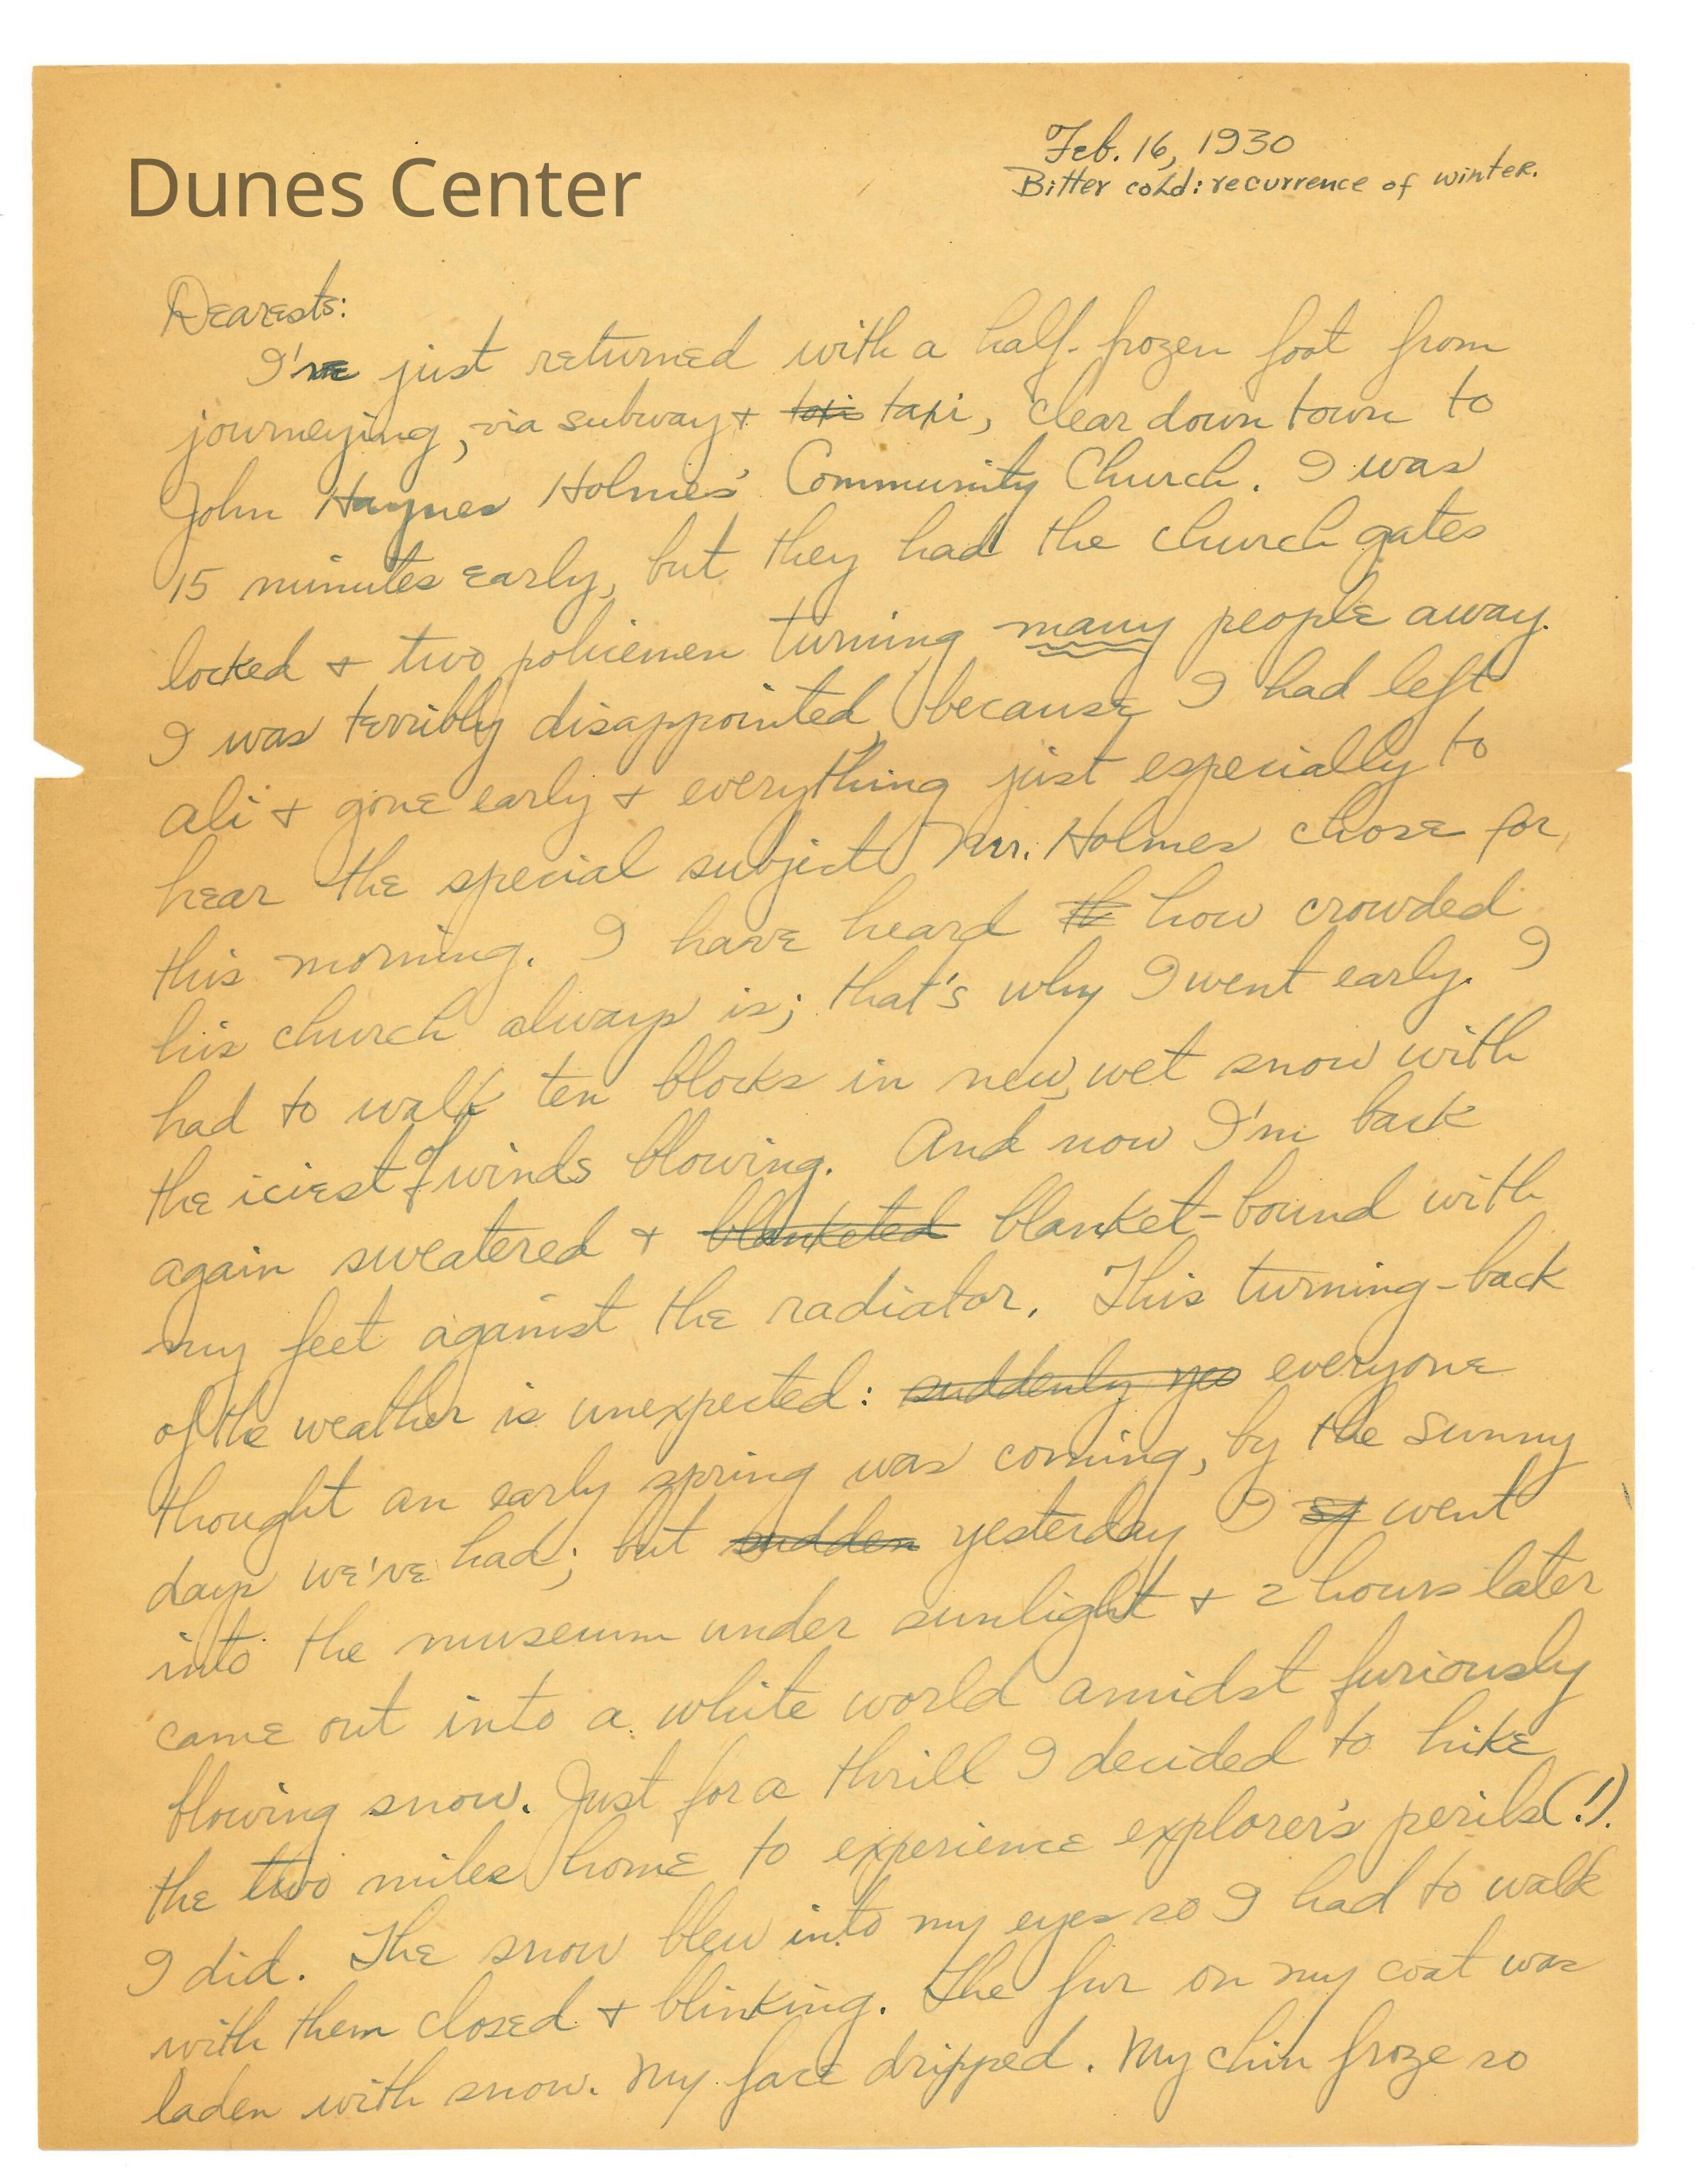 Dunes Center
Feb. 16, 1930
Bitter cold: recurrence of winter.
Dearests:
I've just returned with a half-frozen foot from
journeying, via subway & taxi taxi, clear down town to
John Haynes Holmes' Community Church. I was
15 minutes early, but they had the church gates
locked & two policemen turning many people away.
I was terribly disappointed, because I had left
Ali & gone early & everything just especially to
hear the special subject Mr. Holmes chose for
this morning. I have heard th how crowded
his church always is; that's why I went early. I
had to walk ten blocks in new, wet snow with
the iciest of winds blowing. And now I'm back
again sweatered & blanketed blanket-bound with
my feet against the radiator. This turning-back
of the weather is unexpected: suddenly yes everyone
thought an early spring was coming, by the sunny
days we've had; but sudden yesterday I went
into the museum under sunlight & 2 hours later
came out into a white world amidst furiously
blowing snow. Just for a thrill I decided to hike
the two miles home to experience explorer's perils (!).
I did. The snow blew into my eyes so I had to walk
with them closed & blinking. The fur on my coat was
laden with snow. My face dripped. My chin froze so